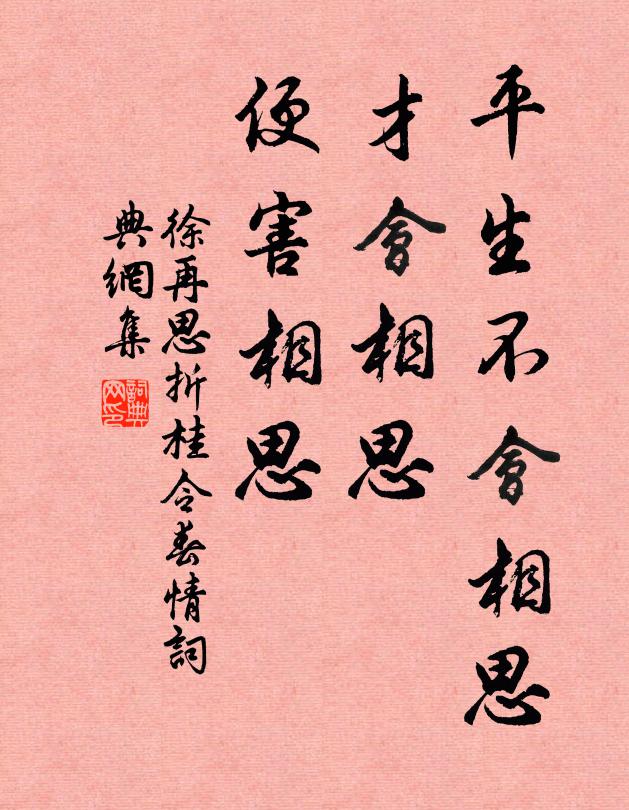 平生不會相思
才會相思
便害相思
徐再思折桂令春情詞
典網集
詞典
网印